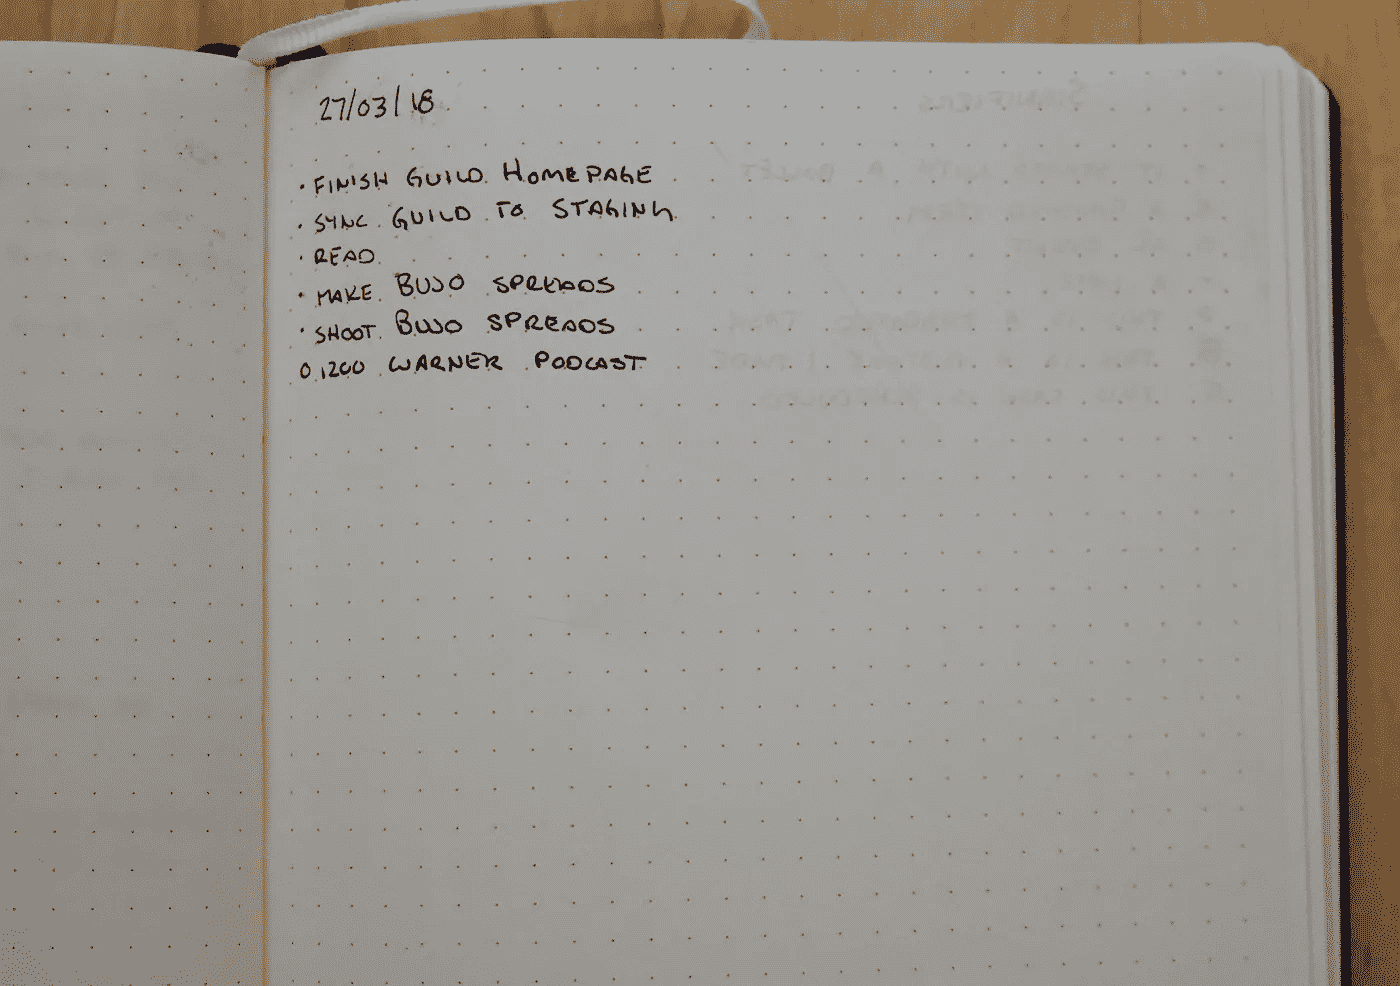 27/03/18
· FINISH GUILD HOMEPAGE
· SYNC GUILD TO STAGING
· READ
· MAKE BUJO SPREADS
· SHOOT BUJO SPREADS
O 1200 WARNER PODCAST